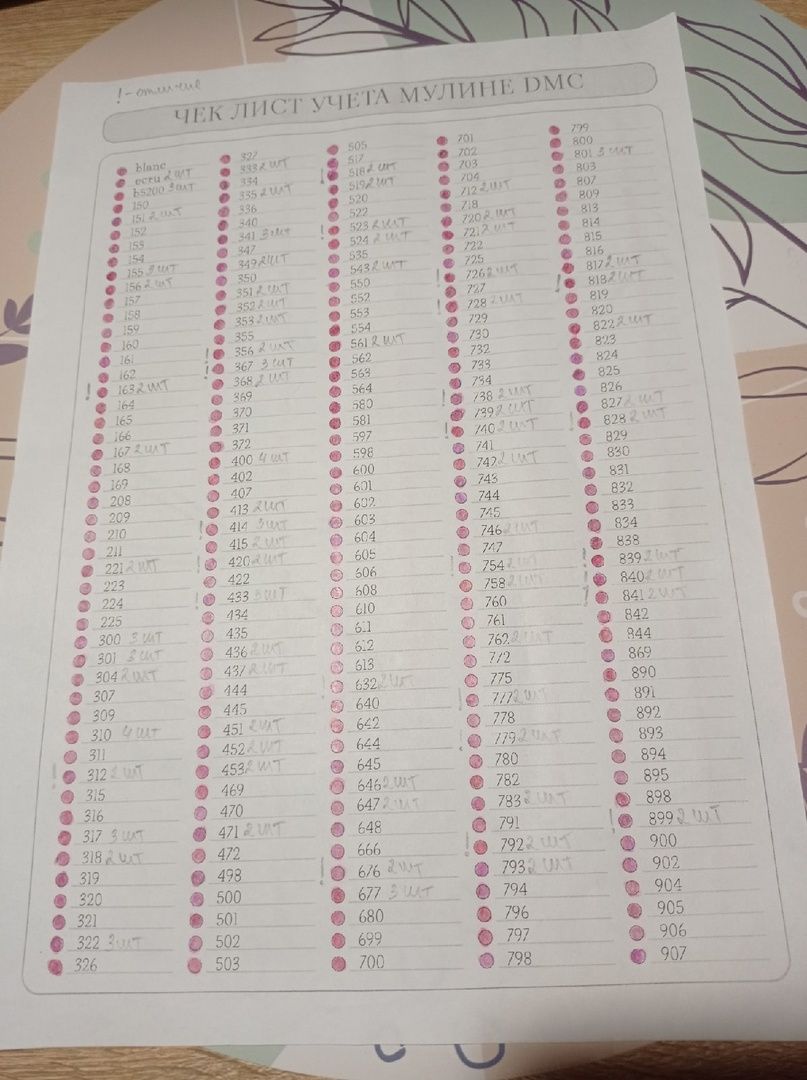 !-отличие
ЧЕК ЛИСТ УЧЕТА МУЛИНЕ DMC
blanc
ecru 2 шт
b5200 3 шт
150
151 2 шт
152
153
154
155 3 шт
156 2 шт
157
158
159
160
161
162
! 163 2 шт
164
165
166
167 2 шт
168
169
208
209
210
211
221 2 шт
223
224
225
300 3 шт
301 3 шт
304 2 шт
307
309
310 4 шт
311
! 312 2 шт
315
316
317 3 шт
318 2 шт
319
320
321
322 3 шт
326
327
333 2 шт
334
335 2 шт
336
340
341 3 шт
347
349 2 шт
350
351 2 шт
352 2 шт
353 2 шт
355
! 356 2 шт
! 367 3 шт
368 2 шт
369
370
371
372
400 4 шт
402
407
413 2 шт
! 414 3 шт
415 2 шт
! 420 2 шт
422
! 433 3 шт
434
435
436 2 шт
437 2 шт
444
445
451 2 шт
452 2 шт
453 2 шт
469
470
471 2 шт
472
498
500
501
502
503
505
517
! 518 2 шт
519 2 шт
520
522
! 523 2 шт
524 2 шт
535
543 2 шт
550
552
553
554
561 2 шт
562
563
564
580
581
597
598
600
601
602
603
604
605
606
608
610
611
612
613
! 632 2 шт
640
642
644
645
646 2 шт
647 2 шт
648
666
! 676 2 шт
677 3 шт
680
699
700
701
702
703
704
712 2 шт
718
720 2 шт
721 2 шт
722
725
! 726 2 шт
727
! 728 2 шт
729
730
732
733
734
! 738 2 шт
739 2 шт
! 740 2 шт
741
742 2 шт
743
744
745
746 2 шт
747
! 754 2 шт
758 2 шт
760
761
762 2 шт
772
775
! 777 2 шт
778
! 779 2 шт
780
782
783 2 шт
791
! 792 2 шт
793 2 шт
794
796
797
798
799
800
801 3 шт
803
807
809
813
814
815
816
817 2 шт
! 818 2 шт
819
820
822 2 шт
823
824
825
826
827 2 шт
! 828 2 шт
829
830
831
832
833
834
838
! 839 2 шт
! 840 2 шт
! 841 2 шт
842
844
869
890
891
892
893
894
895
898
! 899 2 шт
900
902
904
905
906
907